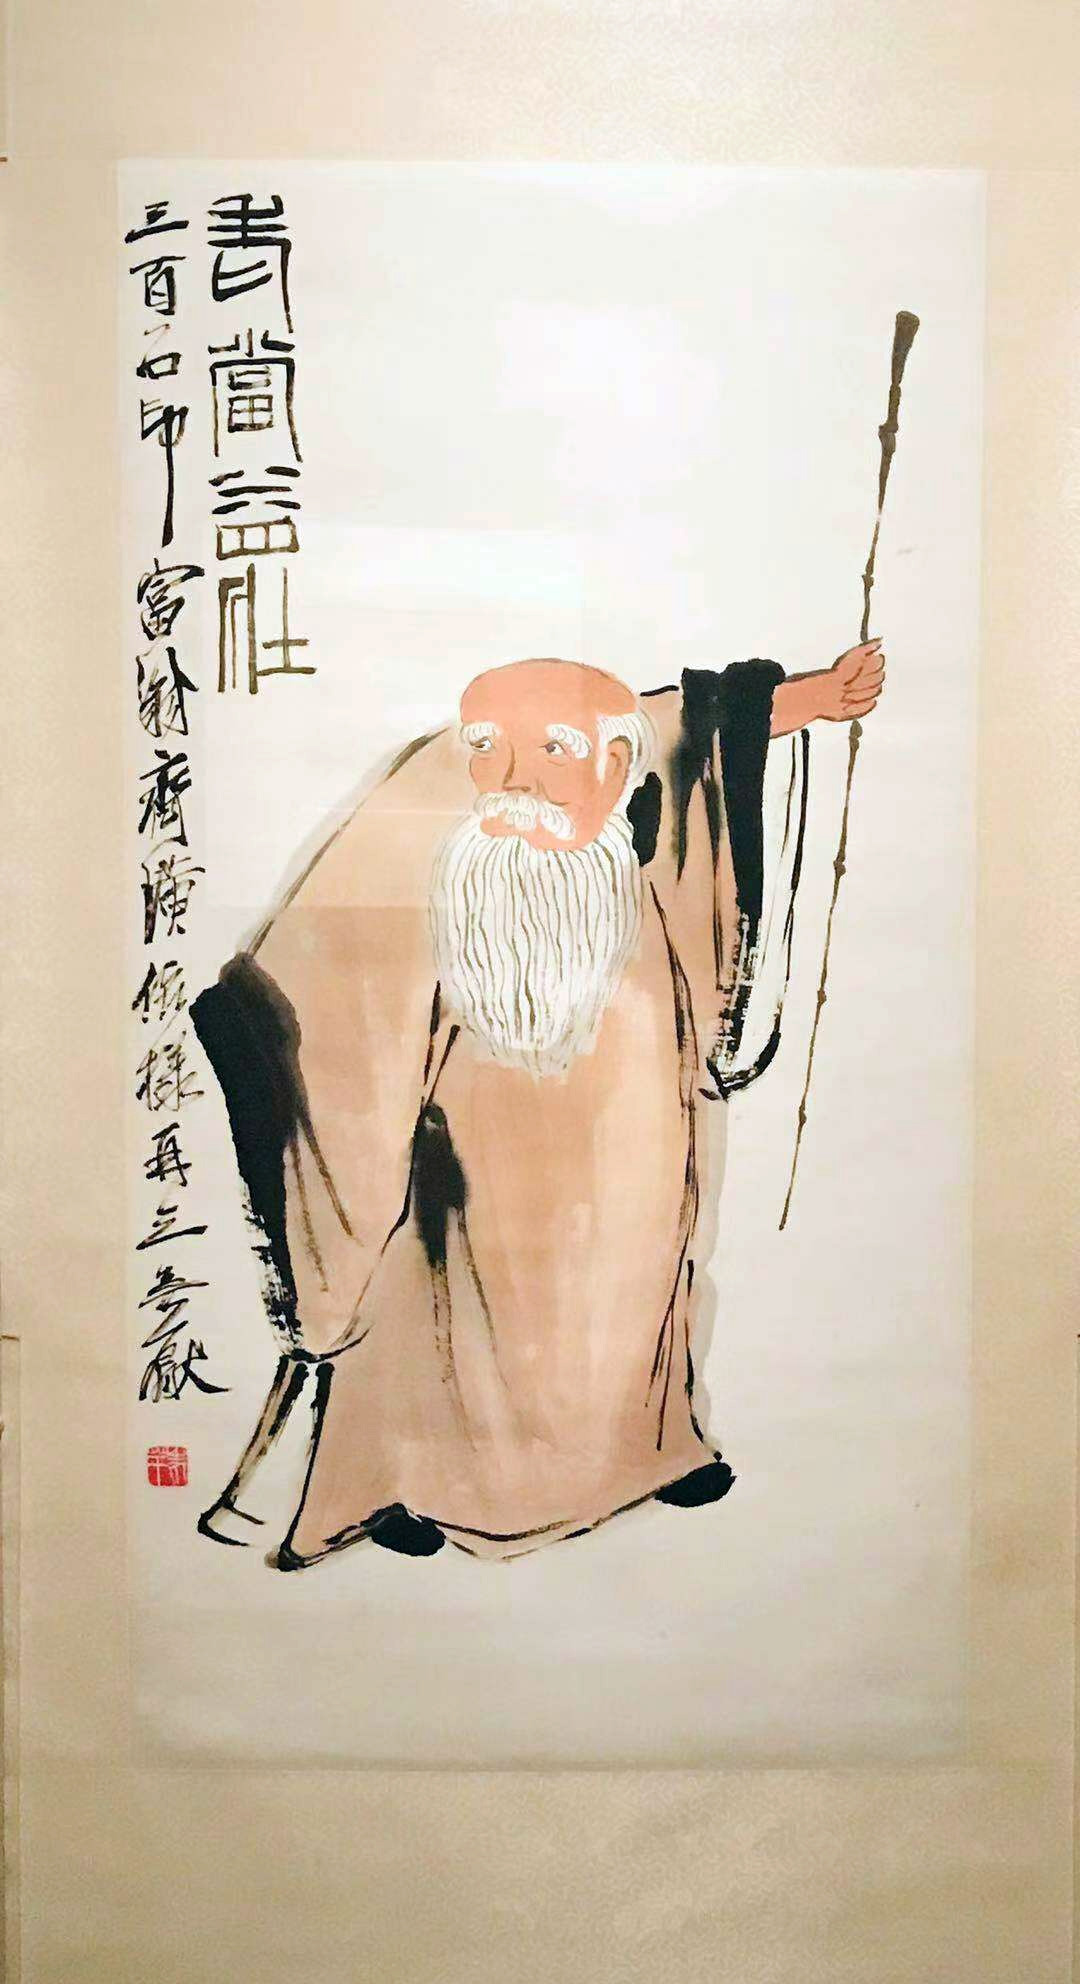 老當益壯
三百石印富翁齊璜依樣再三無厭